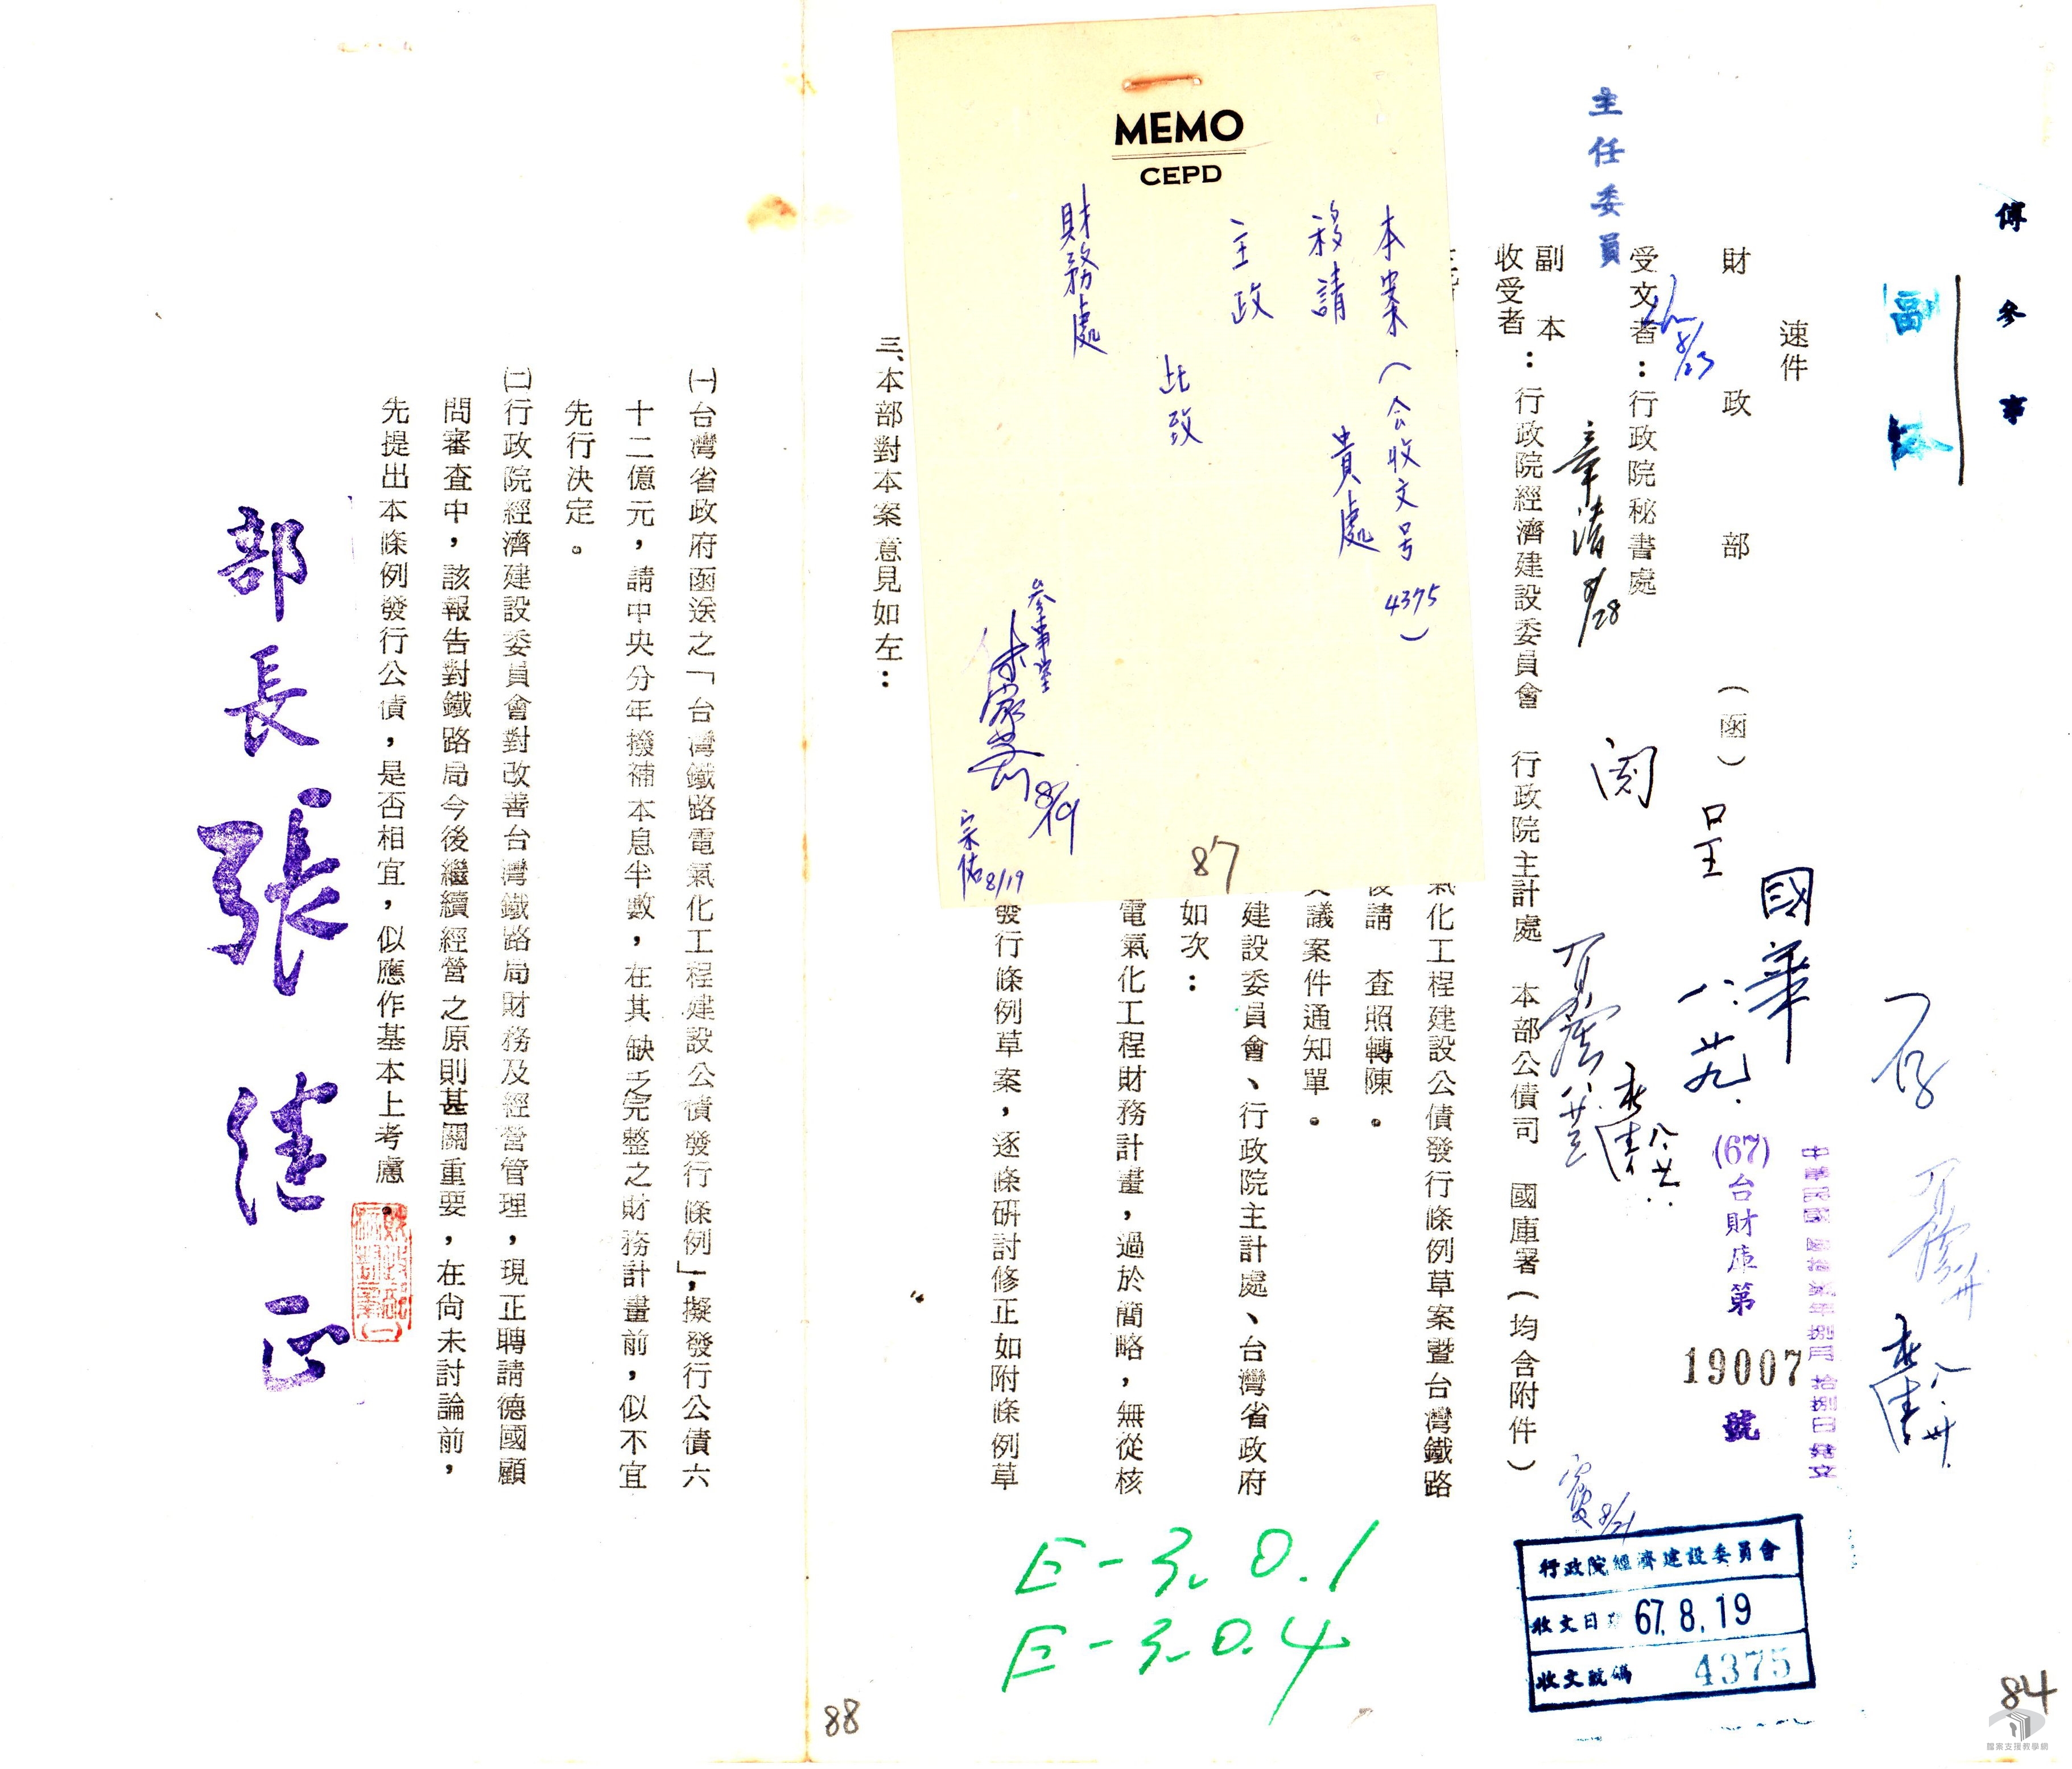 傅參事
副本
速件
財政部(函)
主任委員
受文者：行政院秘書處
副本
收受者：行政院經濟建設委員會 行政院主計處 本部公債司 國庫署(均含附件)
章
8/28
閱
呈
國華
八.
存
中華民國 年捌月拾捌日發文
(67)台財庫第19007號
氣化工程建設公債發行條例草案暨台灣鐵路
請 查照轉陳。
議案件通知單。
建設委員會、行政院主計處、台灣省政府
如次：
電氣化工程財務計畫，過於簡略，無從核
發行條例草案，逐條研討修正如附條例草
MEMO
CEPD
本案(会收文号4375)
移請 貴處
主政
此致
財務處
參事室
8/19
宗佑8/19
87
8/21
行政院經濟建設委員會
收文日 67.8.19
收文號碼 4375
E-3.0.1
E-3.0.4
84
檔案支援教學網
三、本部對本案意見如左：
㈠台灣省政府函送之「台灣鐵路電氣化工程建設公債發行條例」，擬發行公債六
十二億元，請中央分年撥補本息半數，在其缺乏完整之財務計畫前，似不宜
先行決定。
㈡行政院經濟建設委員會對改善台灣鐵路局財務及經營管理，現正聘請德國顧
問審查中，該報告對鐵路局今後繼續經營之原則甚關重要，在尚未討論前，
先提出本條例發行公債，是否相宜，似應作基本上考慮。
部長張繼正
88